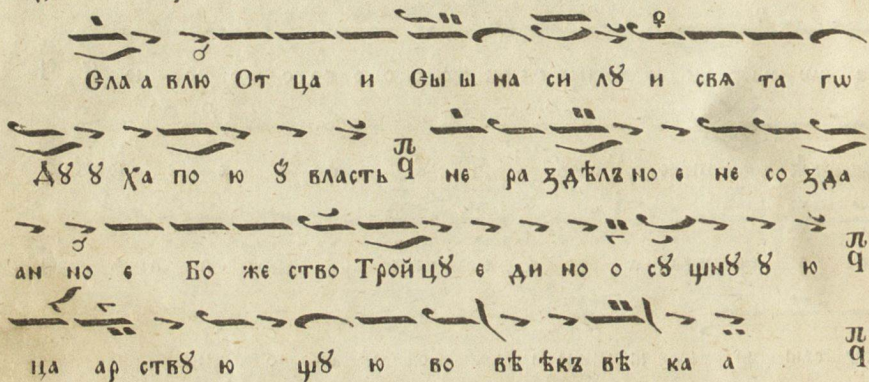 Сла а влю От ца и Сы ы на си лꙋ и свѧ та гѡ
Дꙋ ꙋ ха по ю ꙋ власть не ра здѣлъ но е не со зда
ан но е Бо же ство Трой цꙋ е ди но о сꙋ щнꙋ ꙋ ю
ца ар ствꙋ ю щꙋ ю во вѣ ѣкъ вѣ ка а